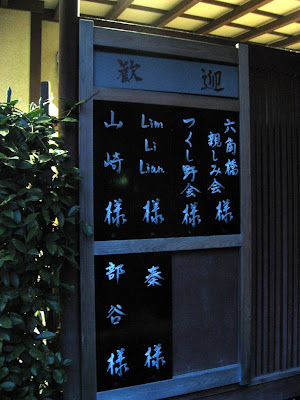 歡迎
六角橋
親しみ会様
つくし野会様
Lim
Li
Lian
様
山崎様
秦様
部谷様